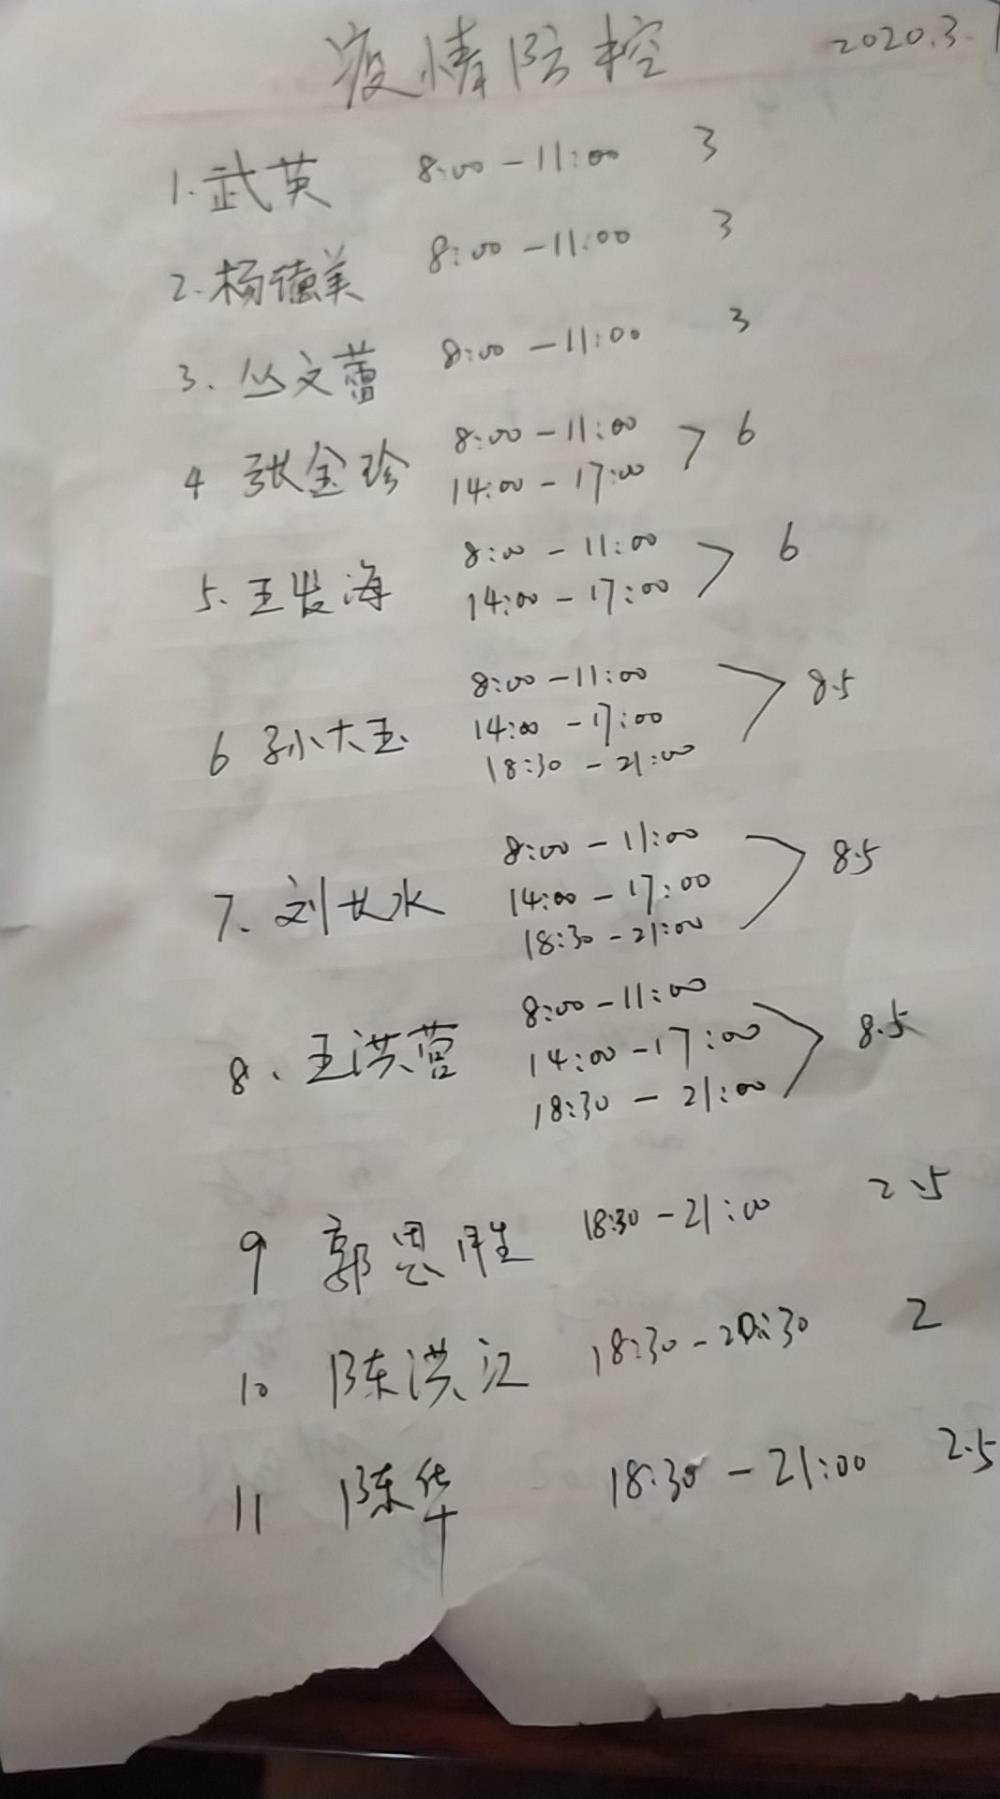 疫情防控 2020.3.1
1.武英 8:00-11:00 3
2.杨德美 8:00-11:00 3
3.丛文蕾 8:00-11:00 3
4 张金珍 8:00-11:00 > 6
14:00-17:00
5.王发海 8:00-11:00 > 6
14:00-17:00
6 孙大玉 8:00-11:00 > 8.5
14:00-17:00
18:30-21:00
7.刘长水 8:00-11:00 > 8.5
14:00-17:00
18:30-21:00
8、王洪营 8:00-11:00 > 8.5
14:00-17:00
18:30-21:00
9 郭恩胜 18:30-21:00 2.5
10 陈洪江 18:30-20:30 2
11 陈华 18:30-21:00 2.5